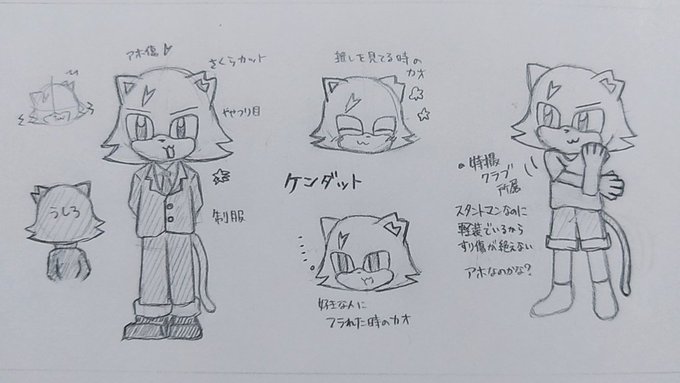 アホ傷
さくらカット
ややつり目
制服
うしろ
推しを見てる時の
カオ
ケンダット
好きな人に
フラれた時のカオ
特撮
クラブ
所属
スタントマンなのに
軽装でいるから
すり傷が絶えない
アホなのかな?